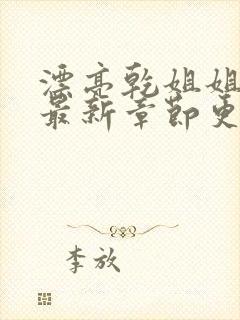 漂亮乾姐姐
最新章節更
李放